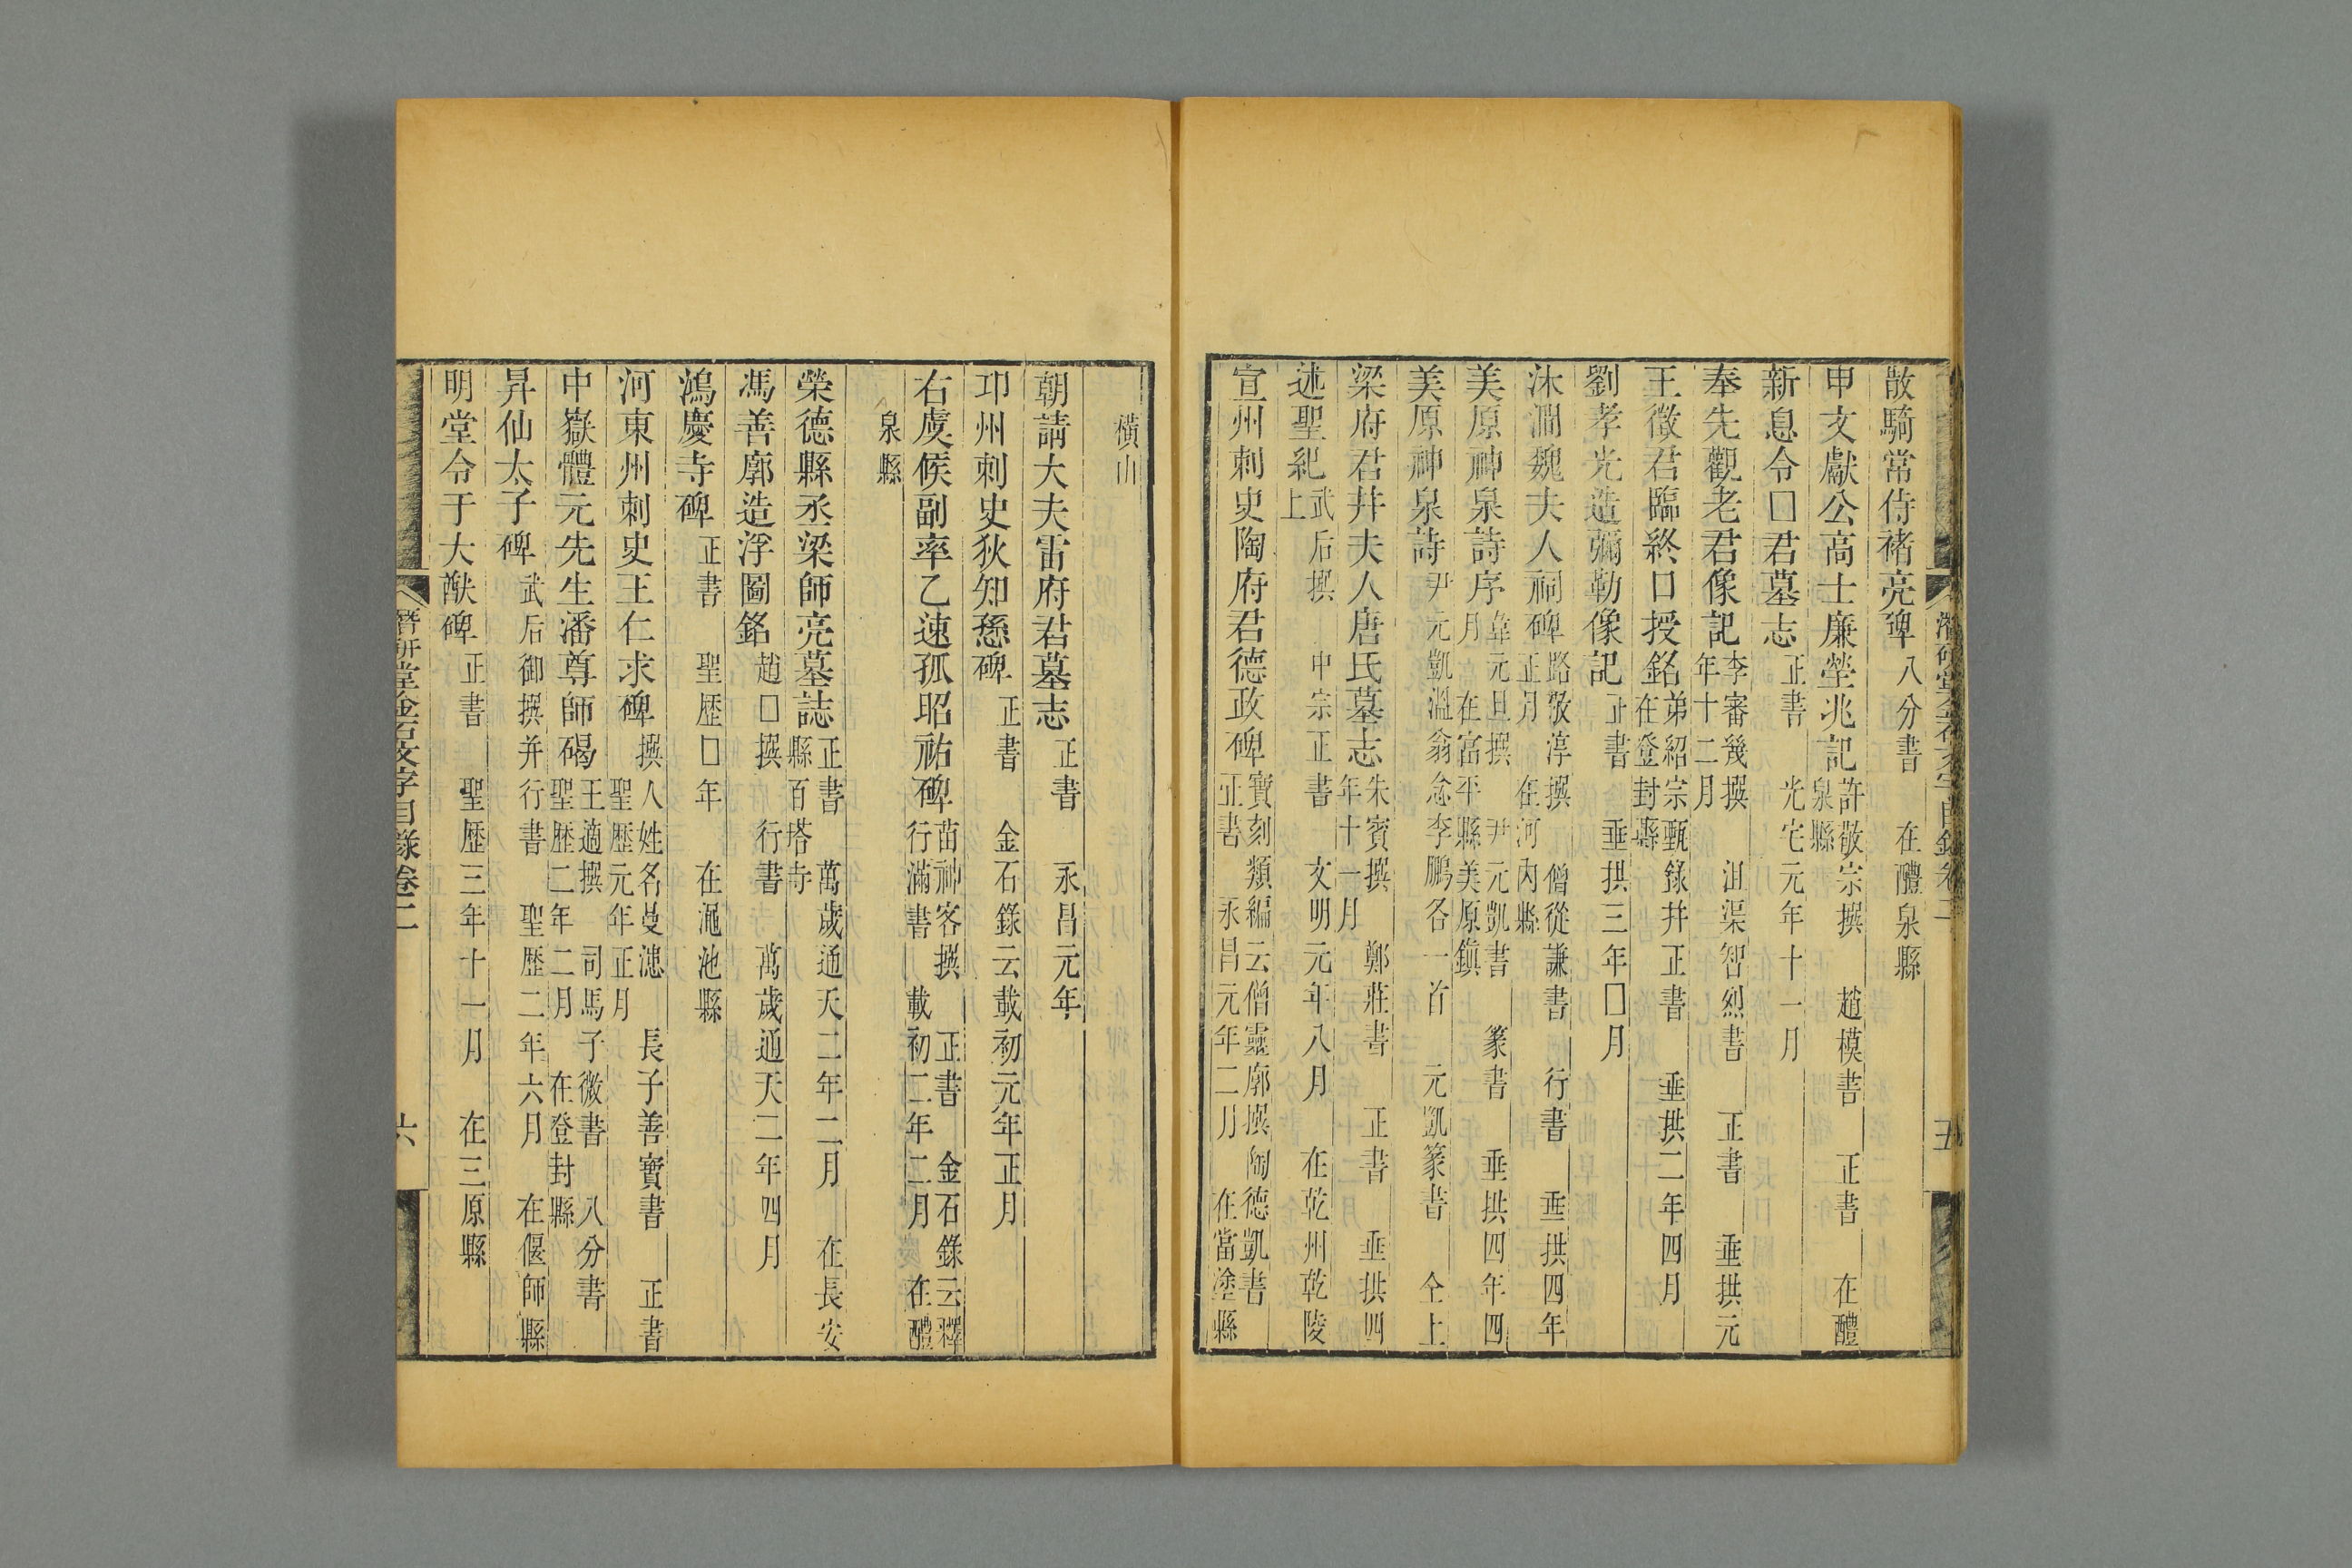 散騎常侍褚亮碑 八分書 在醴泉縣
申文獻公高士廉塋兆記 許敬宗撰 趙模書 正書 在醴
泉縣
新息令□君墓志 正書 光宅元年十一月
奉先觀老君像記 李審幾撰 沮渠智烈書 正書 垂拱元
年十二月
王徵君臨終口授銘 弟紹宗甄錄幷正書 垂拱二年四月
在登封縣
劉孝光造彌勒像記 正書 垂拱三年□月
沐澗魏夫人祠碑 路敬淳撰 僧從謙書 行書 垂拱四年
正月 在河內縣
美原神泉詩序 韋元旦撰 尹元凱書 篆書 垂拱四年四
月 在富平縣美原鎮
美原神泉詩 尹元凱溫翁念李鵬各一首 元凱篆書 仝上
梁府君幷夫人唐氏墓志 朱賓撰 鄭莊書 正書 垂拱四
年十一月
述聖紀 武后撰 中宗正書 文明元年八月 在乾州乾陵
上
宣州刺史陶府君德政碑 寶刻類編云僧靈廓撰陶德凱書
正書 永昌元年二月 在當塗縣
潛研堂金石文字目錄卷二 五
橫山
朝請大夫雷府君墓志 正書 永昌元年
邛州刺史狄知愻碑 正書 金石錄云載初元年正月
右虞候副率乙速孤昭祐碑 苗神客撰 正書 金石錄云釋
行滿書 載初二年二月 在醴
泉縣
榮德縣丞梁師亮墓誌 正書 萬歲通天二年二月 在長安
縣百塔寺
馮善廓造浮圖銘 趙□撰 行書 萬歲通天二年四月
鴻慶寺碑 正書 聖歷□年 在澠池縣
河東州刺史王仁求碑 撰人姓名曼漶 長子善寶書 正書
聖歷元年正月
中嶽體元先生潘尊師碣 王適撰 司馬子微書 八分書
聖歷二年二月 在登封縣
昇仙太子碑 武后御撰幷行書 聖歷二年六月 在偃師縣
明堂令于大猷碑 正書 聖歷三年十一月 在三原縣
潛研堂金石文字目錄卷二 六